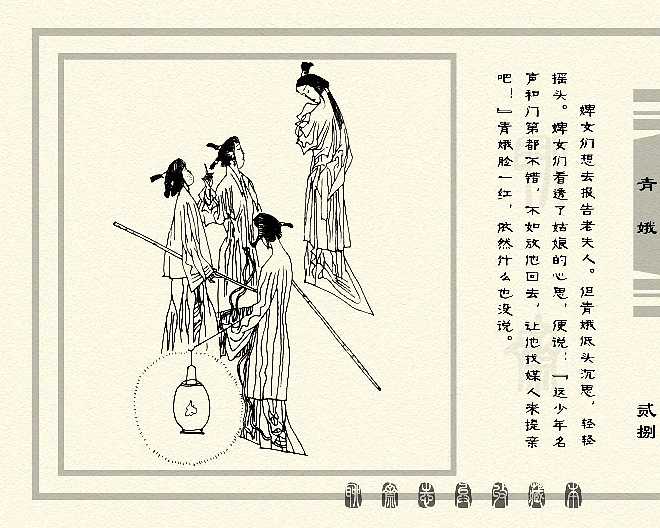 婢女们想去报告老夫人。但青娥低头沉思，轻轻
摇头。婢女们看透了姑娘的心思，便说：『这少年名
声和门第都不错，不如放他回去，让他找媒人来提亲
吧！』青娥脸一红，依然什么也没说。
青娥
贰捌
聊斋志异收藏本